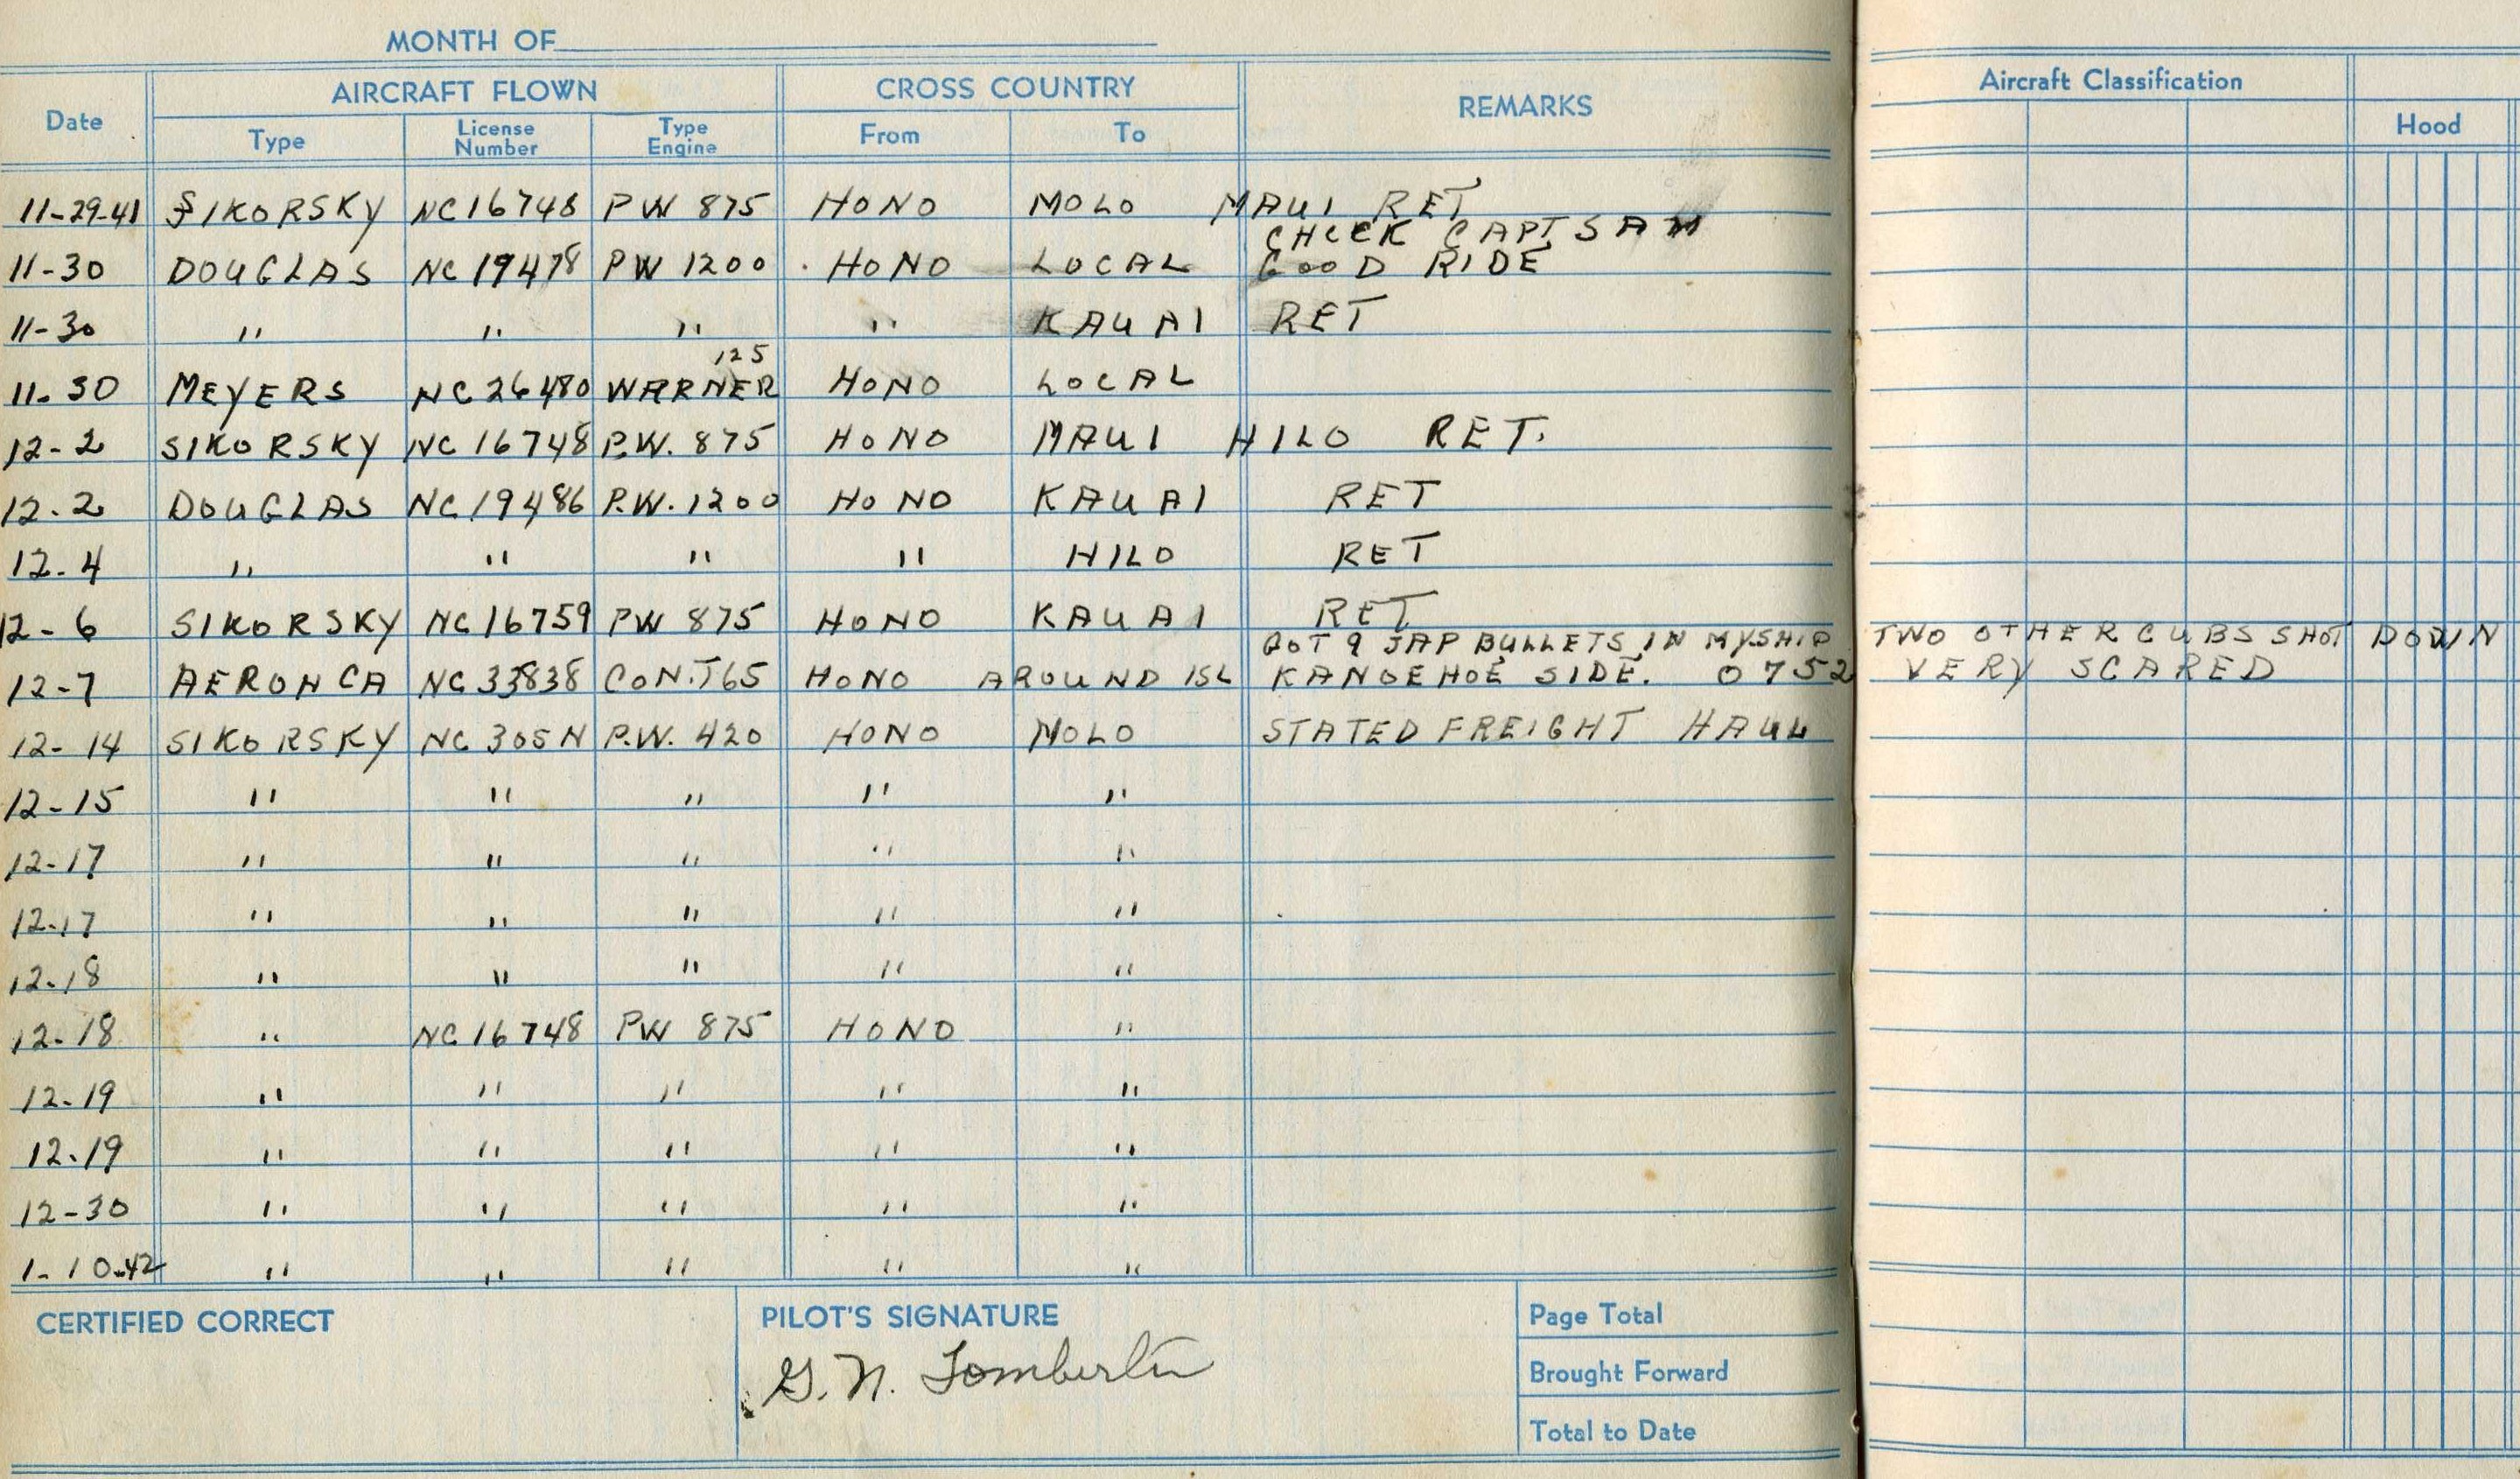 MONTH OF
Date AIRCRAFT FLOWN CROSS COUNTRY REMARKS Aircraft Classification
Type License Number Type Engine From To Hood
11-29-41 SIKORSKY NC16748 PW 875 HONO MOLO MAUI RET
CHECK CAPT SAM
11-30 DOUGLAS NC19478 PW 1200 HONO LOCAL GOOD RIDE
11-30 " " " " KAUAI RET
125
11-30 MEYERS NC26480 WARNER HONO LOCAL
12-2 SIKORSKY NC16748 P.W. 875 HONO MAUI HILO RET.
12-2 DOUGLAS NC19486 P.W. 1200 HONO KAUAI RET
12-4 " " " " HILO RET
12-6 SIKORSKY NC16759 PW 875 HONO KAUAI RET
GOT 9 JAP BULLETS IN MY SHIP TWO OTHER CUBS SHOT DOWN
12-7 AERONCA NC33838 CON.T65 HONO AROUND ISL KANOEHOE SIDE. 0752 VERY SCARED
12-14 SIKORSKY NC305N P.W. 420 HONO MOLO STATED FREIGHT HAUL
12-15 " " " " "
12-17 " " " " "
12-17 " " " " "
12-18 " " " " "
12-18 " NC16748 PW 875 HONO "
12-19 " " " " "
12-19 " " " " "
12-30 " " " " "
1-10-42 " " " " "
CERTIFIED CORRECT PILOT'S SIGNATURE Page Total
G. N. Tomberlin Brought Forward
Total to Date